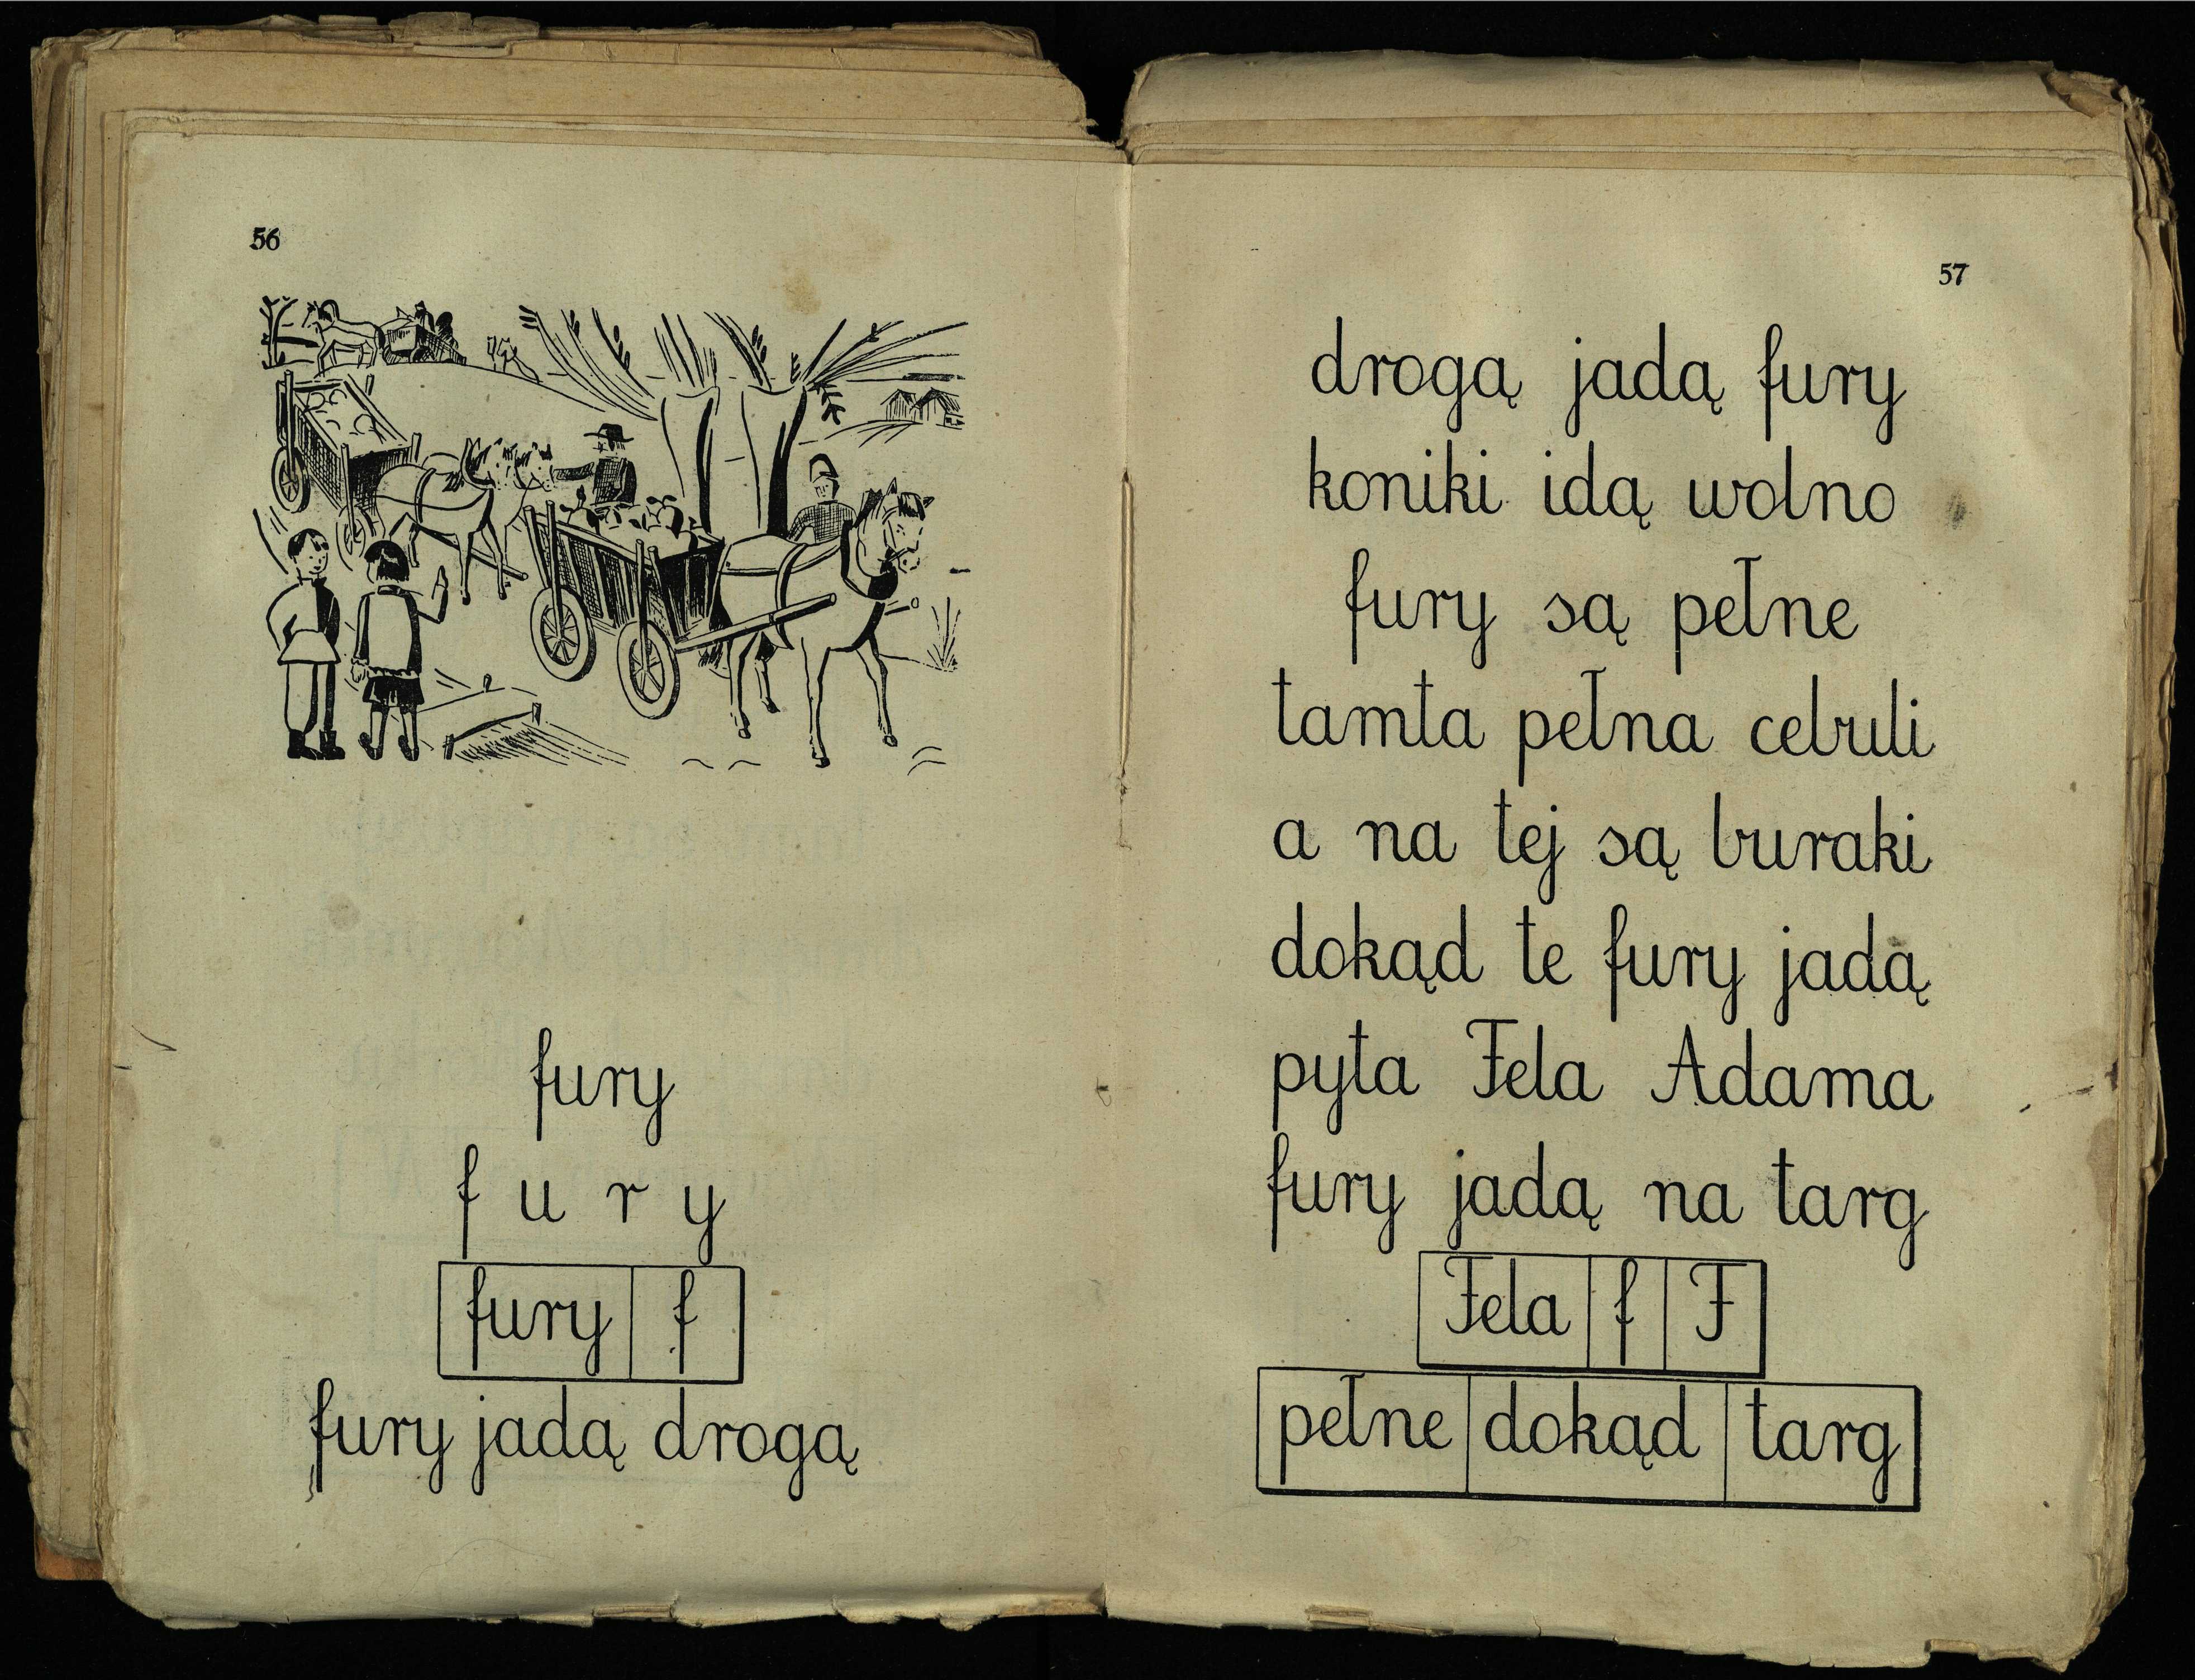 56
fury
f u r y
fury f
fury jadą drogą
57
drogą jadą fury
koniki idą wolno
fury są pełne
tamta pełna cebuli
a na tej są buraki
dokąd te fury jadą
pyta Fela Adama
fury jadą na targ
Fela f F
pełne dokąd targ